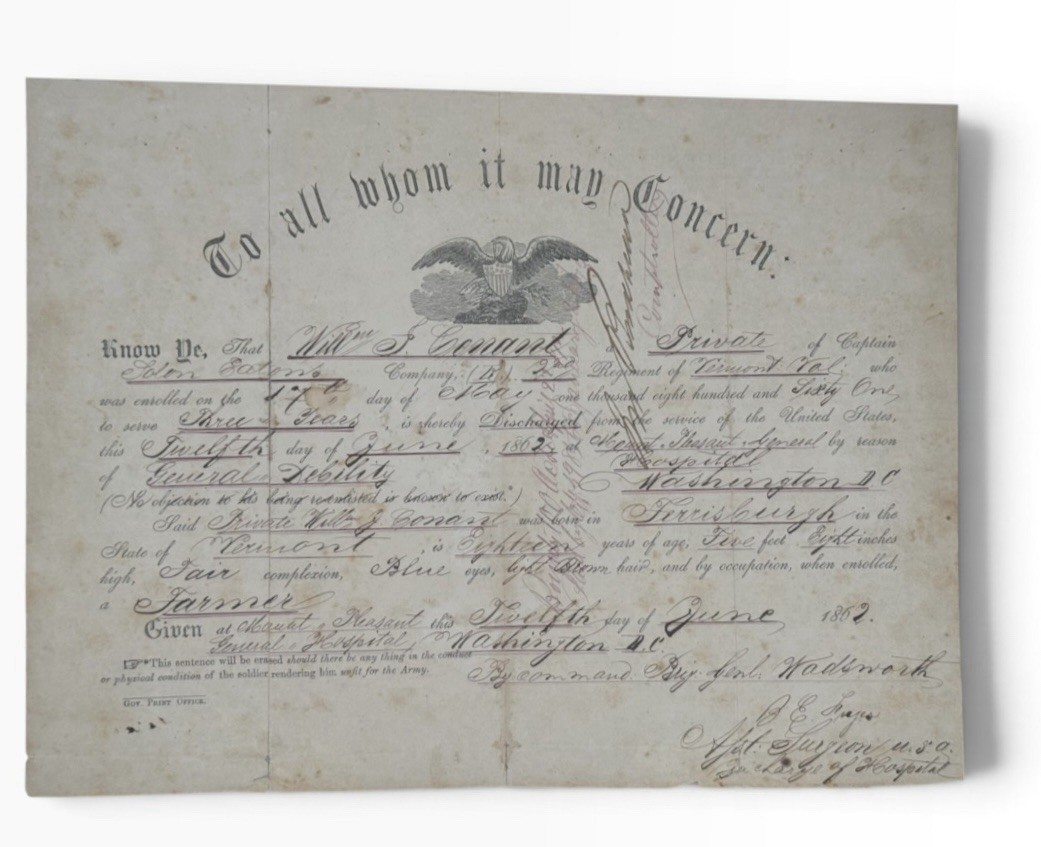 To all whom it may Concern:
Know Ye, That Willm J. Conant a Private of Captain
Solon Eatons Company, (K), 2d Regiment of Vermont Vol, who
was enrolled on the 17th day of May one thousand eight hundred and Sixty One,
to serve Three Years, is hereby Discharged from the service of the United States,
this Twelfth day of June, 1862, at Mount Pleasant General by reason
Hospital
of General Debility Washington D C
(No objection to his being reenlisted is known to exist.)
Said Private Willm J Conant was born in Ferrisburgh in the
State of Vermont, is Eighteen years of age, Five feet Eight inches
high, Fair complexion, Blue eyes, light Brown hair, and by occupation, when enrolled,
a Farmer
Given at Mount Pleasant this Twelfth day of June 1862.
General Hospital, Washington D.C
☞*This sentence will be erased should there be any thing in the conduct
or physical condition of the soldier rendering him unfit for the Army.
By command: Brig. Genl. Wadsworth
Gov. Print Office.
B E
Asst. Surgeon, U.S.A.
In charge of Hospital